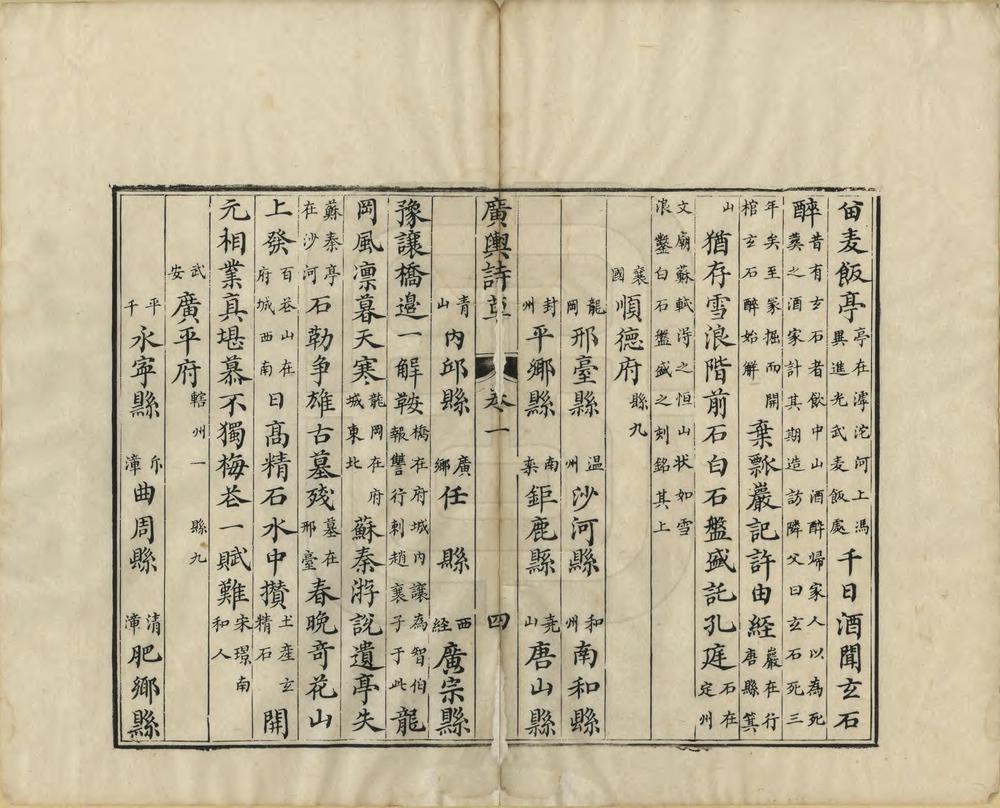 畱麦飯亭亭在滹沱河上馮異進光武麦飯處千日酒聞玄石
醉昔有玄石者飲中山酒醉歸家人以為死葬之酒家計其期造訪隣父曰玄石死三
年矣至冢掘而開棺玄石醉始解棄瓢巖記許由經巖在行唐縣箕
山猶存雪浪階前石白石盤盛託孔庭石在定州
文廟蘇軾淂之恒山状如雪浪鑿白石盤盛之刻銘其上
襄國順德府縣九
龍岡邢臺縣温州沙河縣和州南和縣
封州平鄉縣南栾鉅鹿縣尭山唐山縣
廣輿詩草卷一四
青山内邱縣廣鄉任縣西經廣宗縣
豫讓橋邉一解鞍橋在府城内讓為智伯報讐行刺趙襄子于此龍
岡風凛暮天寒龍岡在府城東北蘇秦游説遺亭失
蘇秦亭在沙河石勒争雄古墓殘墓在邢臺春晚竒花山
上發百花山在府城西南日髙精石水中攅土産玄精石開
元相業真堪慕不獨梅花一賦難宋璟南和人
武安廣平府轄州一縣九
平千永寕縣斥漳曲周縣清漳肥鄉縣